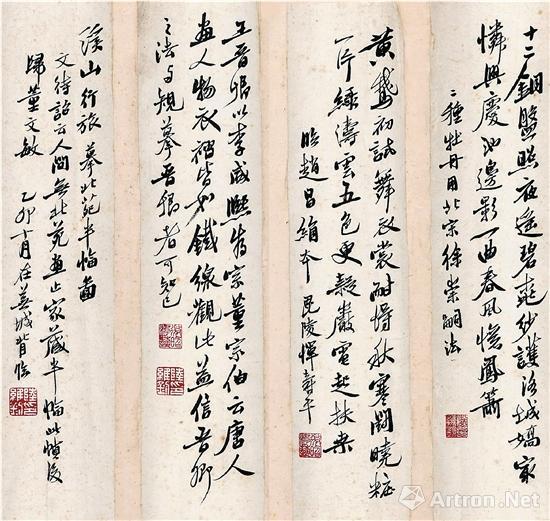 十二銅盤照夜遙碧壺紗護洛城嬌家
憐興慶池邊影一曲春風倚鳳簫
二種牡丹用北宋徐崇嗣法
黃鵞初試舞衣裳耐得秋寒鬪曉粧
一片綠濤雲五色更疑巖電起扶桑
臨趙昌絹本 毘陵惲壽平
王晉卿以李成熙為宗董宗伯云唐人
畫人物衣褶皆如鐵線觀此益信晉卿
之法可規摹晉卿者可知已
谿山行旅 摹北苑半幅圖
文待詔云人間無北苑畫止家藏半幅此幀後
歸董文敏 乙卯十月在蕪城背臨
Artron.Net